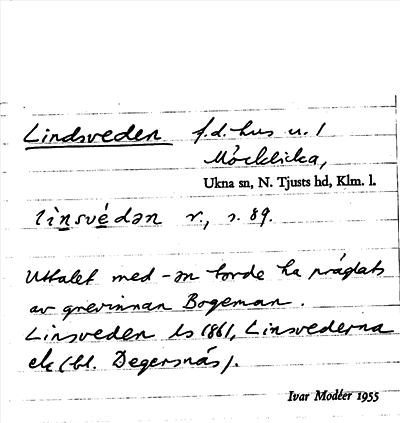 Lindsveden f.d. hus u. 1
Mörcklicka,
Ukna sn, N. Tjusts hd, Klm. l.
linsvédən r., s. 89.
Uttalet med -ən torde ha präglats
av grevinnan Bogeman.
Linsveden ls 1861, Linsvederna
ek (bl. Degersnäs).
Ivar Modéer 1955